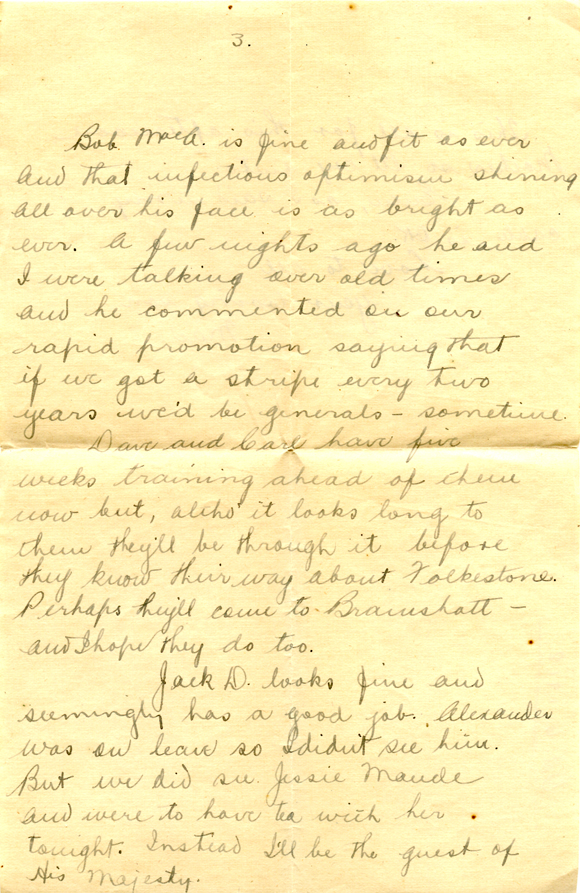 3.
Bob MacA. is fine and fit as ever
and that infectious optimism shining
all over his face is as bright as
ever. A few nights ago he and
I were talking over old times
and he commented on our
rapid promotion saying that
if we got a stripe every two
years we'd be generals - sometime.
Dave and Carl have five
weeks training ahead of them
now but, altho' it looks long to
them they'll be through it before
they know their way about Folkestone.
Perhaps they'll come to Bramshott -
and I hope they do too.
Jack D. looks fine and
seemingly has a good job. Alexander
was on leave so I didn't see him.
But we did see Jessie Maude
and were to have tea with her
tonight. Instead I'll be the guest of
His Majesty.